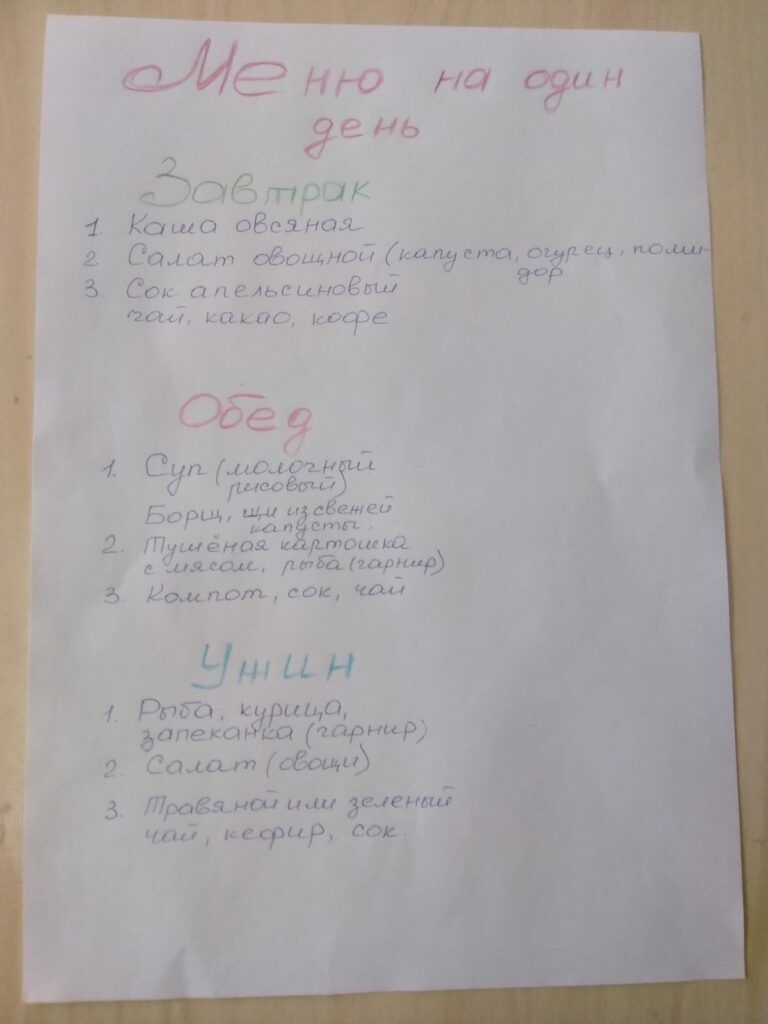 Меню на один
день
Завтрак
1. Каша овсяная
2. Салат овощной (капуста, огурец, поми-
дор
3. Сок апельсиновый
чай, какао, кофе
Обед
1. Суп (молочный
рисовый)
Борщ, щи из свежей
капусты.
2. Тушёная картошка
с мясом, рыба (гарнир)
3. Компот, сок, чай
Ужин
1. Рыба, курица,
запеканка (гарнир)
2. Салат (овощи)
3. Травяной или зеленый
чай, кефир, сок.